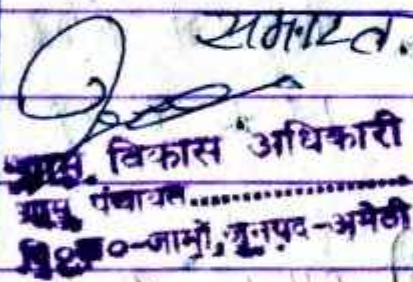 समाप्त.
ग्राम विकास अधिकारी
ग्राम पंचायत..................
वि०ख०-जामों, जनपद-अमेठी